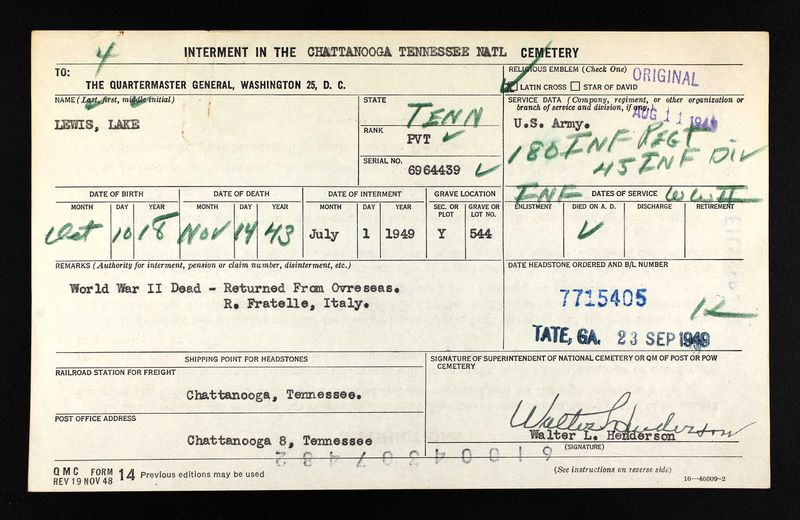 4
INTERMENT IN THE CHATTANOOGA TENNESSEE NATL CEMETERY
TO:
THE QUARTERMASTER GENERAL, WASHINGTON 25, D. C.
RELIGIOUS EMBLEM (Check One) ORIGINAL
LATIN CROSS STAR OF DAVID
NAME (Last, first, middle initial)
LEWIS, LAKE
STATE
TENN
RANK
PVT
SERIAL NO.
6964439
SERVICE DATA (Company, regiment, or other organization or
branch of service and division, if any)
AUG 11 1949
U.S. Army.
180 INF REGT
45 INF DIV
INF DATES OF SERVICE WW II
ENLISTMENT DIED ON A. D. DISCHARGE RETIREMENT
DATE OF BIRTH DATE OF DEATH DATE OF INTERMENT GRAVE LOCATION
MONTH DAY YEAR MONTH DAY YEAR MONTH DAY YEAR SEC. OR PLOT GRAVE OR LOT NO.
Oct 10 18 NOV 14 43 July 1 1949 Y 544
REMARKS (Authority for interment, pension or claim number, disinterment, etc.)
World War II Dead - Returned From Ovreseas.
R. Fratelle, Italy.
DATE HEADSTONE ORDERED AND B/L NUMBER
7715405
12
TATE, GA. 23 SEP 1949
SHIPPING POINT FOR HEADSTONES
RAILROAD STATION FOR FREIGHT
Chattanooga, Tennessee.
POST OFFICE ADDRESS
Chattanooga 8, Tennessee
SIGNATURE OF SUPERINTENDENT OF NATIONAL CEMETERY OR QM OF POST OR POW
CEMETERY
Walter L Henderson
Walter L. Henderson
(SIGNATURE)
61004307482
QMC FORM 14 Previous editions may be used
REV 19 NOV 48
(See instructions on reverse side)
16—46609-2